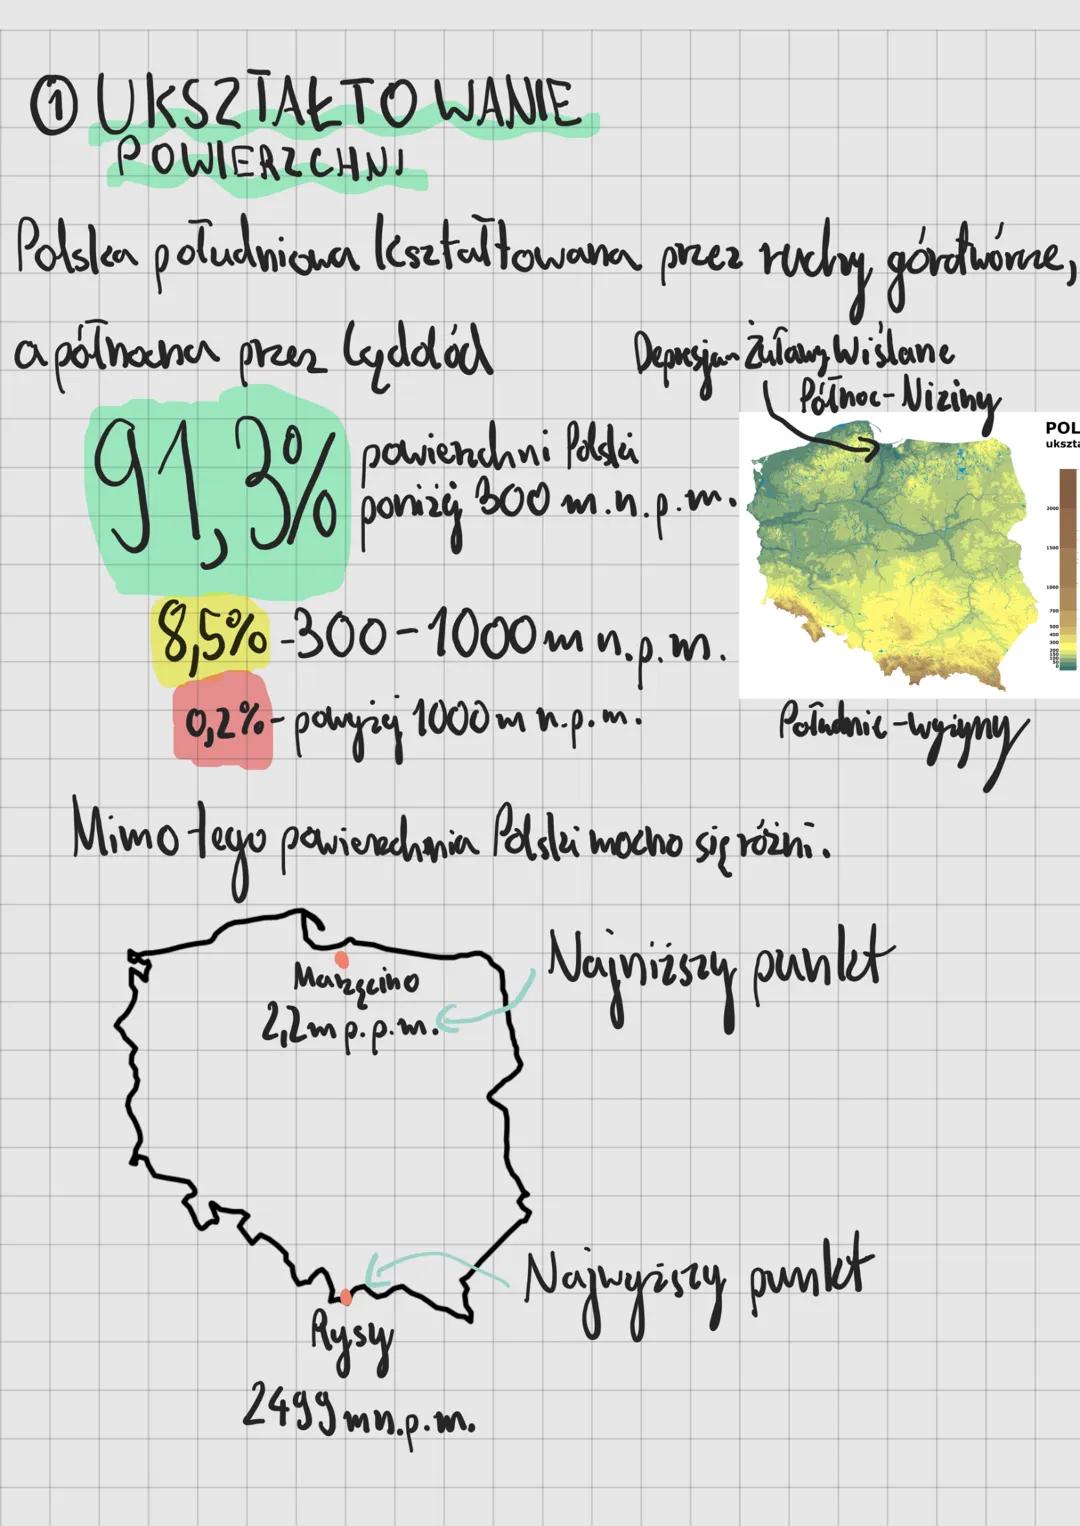 ① UKSZTAŁTOWANIE
POWIERZCHNI
Polska południowa kształtowana przez ruchy górotwórcze,
a północna przez lądolód
Depresja - Żuławy Wiślane
Północ - Niziny
91,3% powierzchni Polski
poniżej 300 m.n.p.m.
POL
ukszta
2000
1500
1000
700
500
400
300
200
150
100
50
0
8,5% - 300 - 1000 m n.p.m.
0,2% - powyżej 1000 m n.p.m.
Południe - wyżyny
Mimo tego powierzchnia Polski mocno się różni.
Marzęcino
2,2 m p.p.m.
Najniższy punkt
Najwyższy punkt
Rysy
2499 m n.p.m.